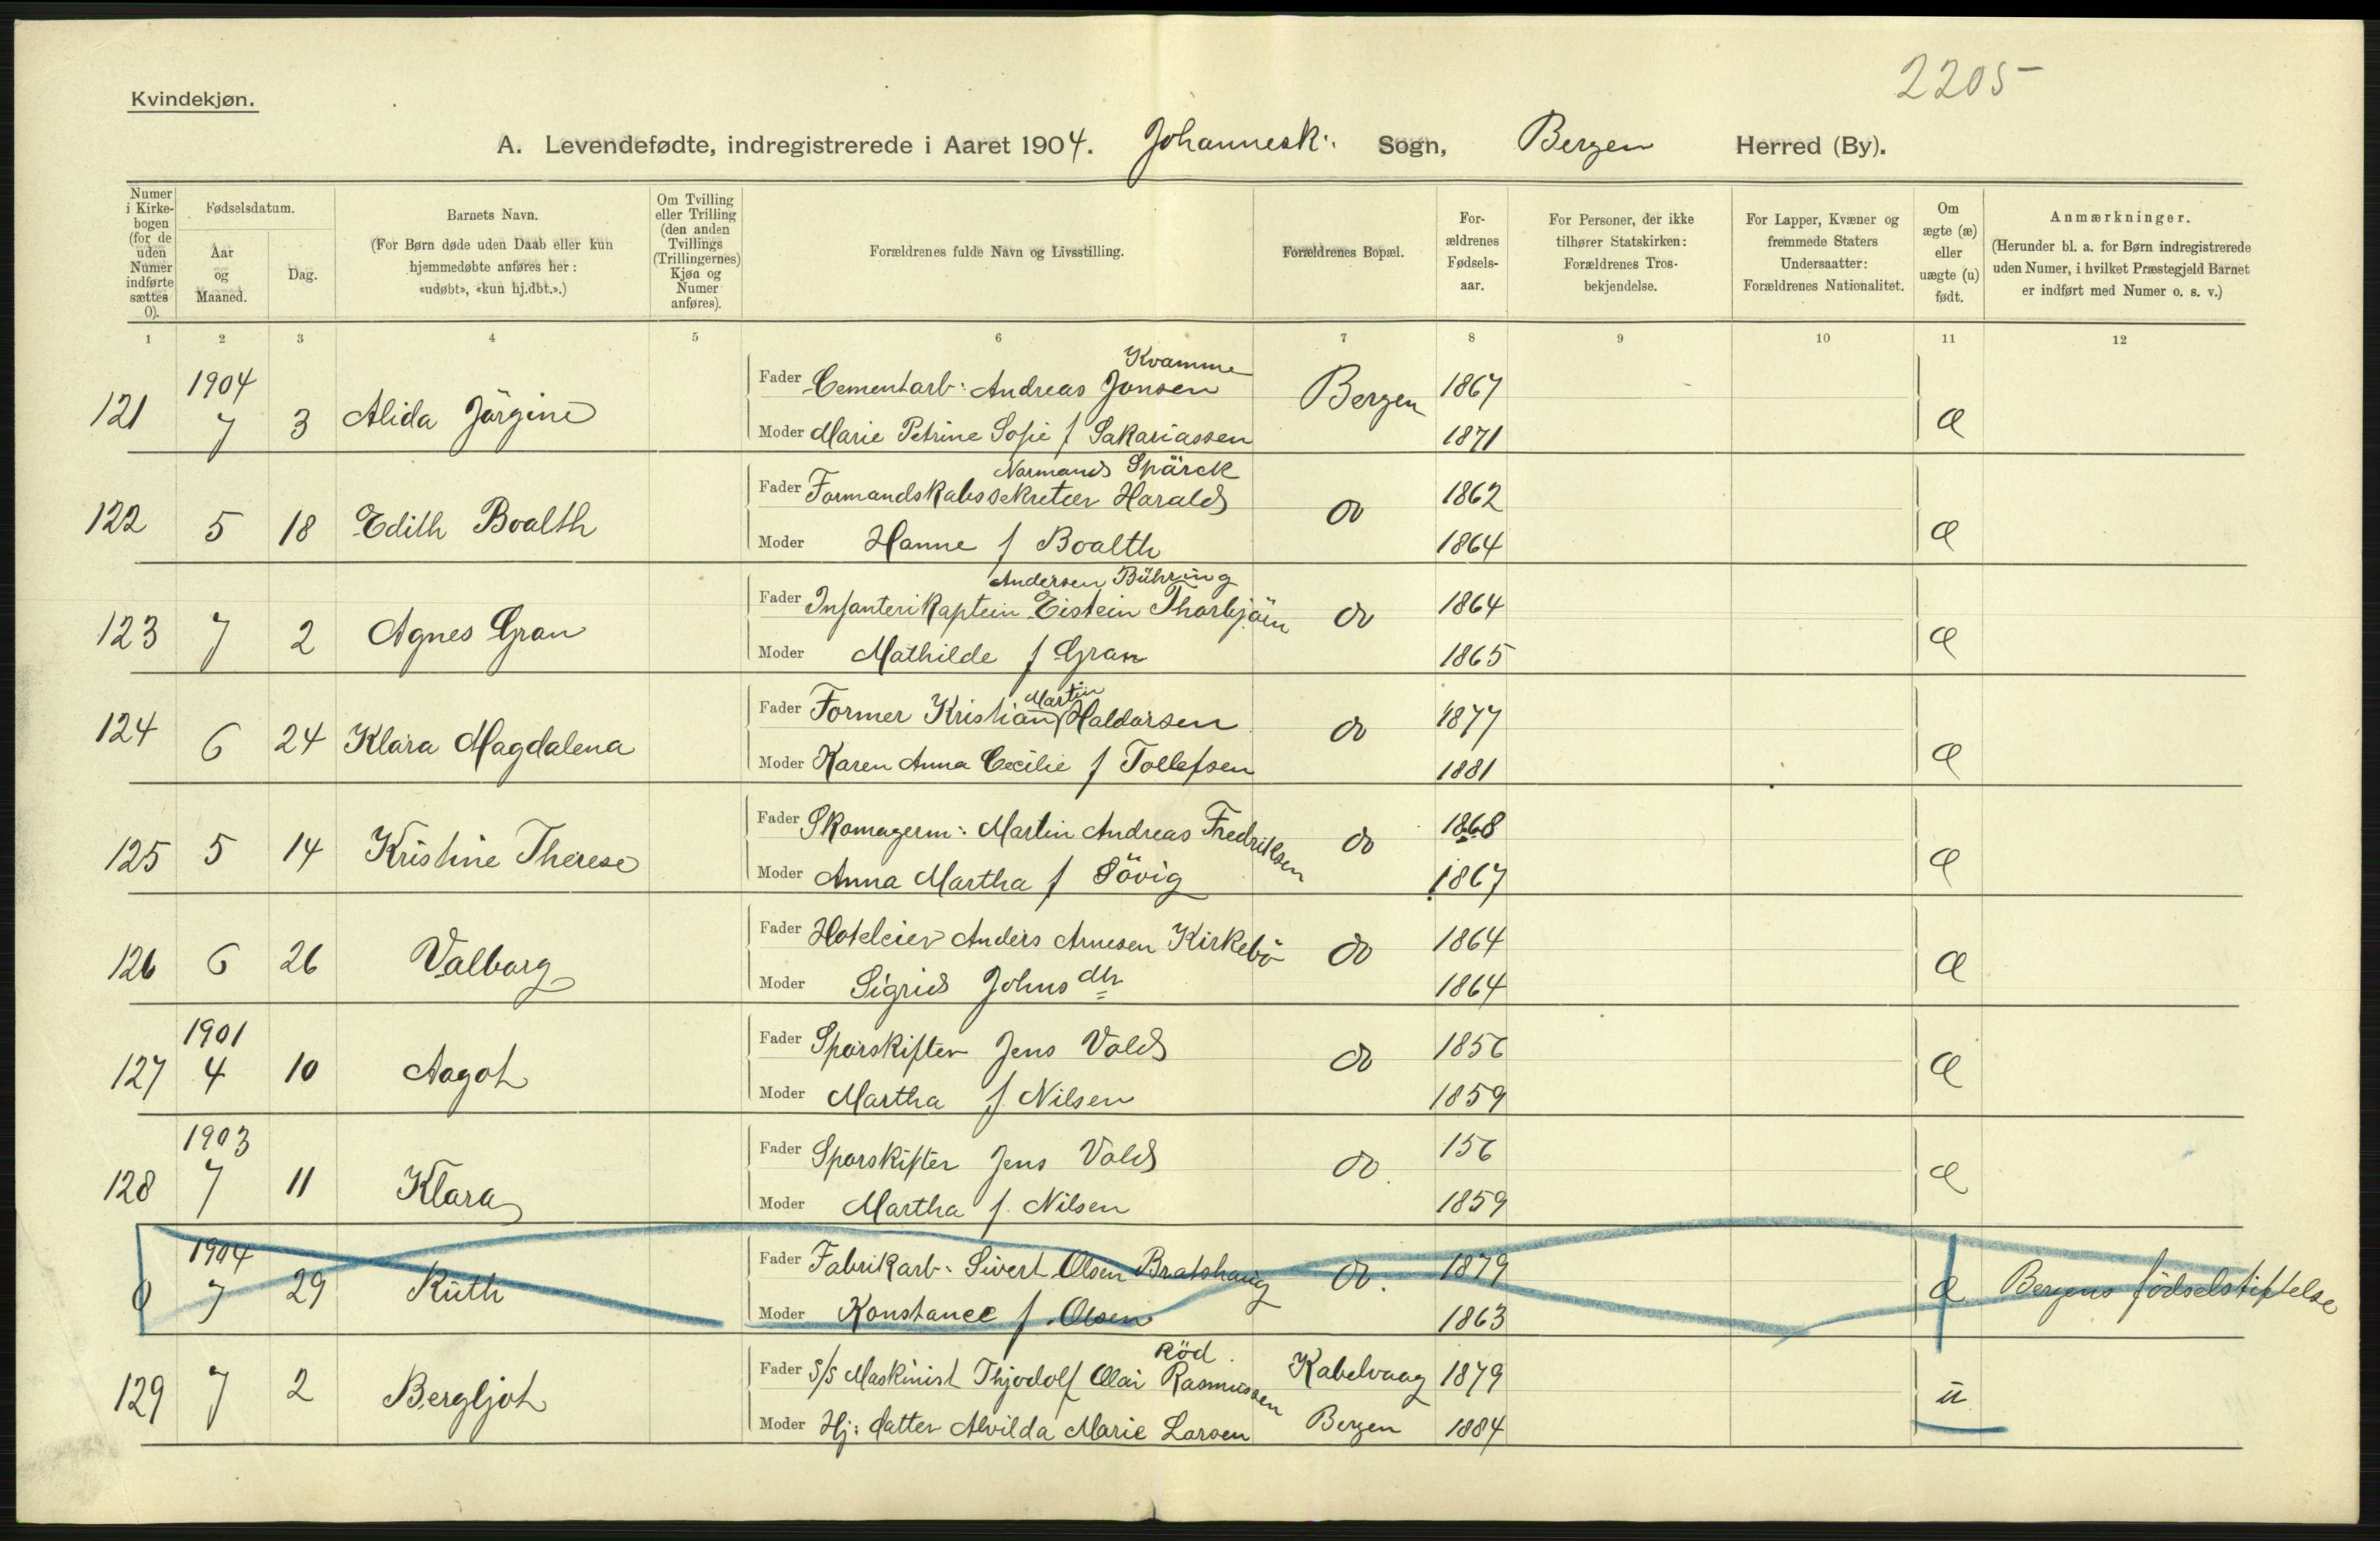 2205
Kvindekjøn.
A. Levendefødte, indregistrerede i Aaret 1904. Johannesk: Sogn, Bergen Herred (By).
Numer i Kirkebogen (for de uden Numer indførte sættes 0).
Fødselsdatum.
Aar og Maaned.
Dag.
Barnets Navn.
(For Børn døde uden Daab eller kun hjemmedøbte anføres her: «udøbt», «kun hj.dbt.».)
Om Tvilling eller Trilling (den anden Tvillings (Trillingernes) Kjøn og Numer anføres).
Forældrenes fulde Navn og Livsstilling.
Forældrenes Bopæl.
Forældrenes Fødselsaar.
For Personer, der ikke tilhører Statskirken: Forældrenes Trosbekjendelse.
For Lapper, Kvæner og fremmede Staters Undersaatter: Forældrenes Nationalitet.
Om ægte (æ) eller uægte (u) født.
Anmærkninger.
(Herunder bl. a. for Børn indregistrerede uden Numer, i hvilket Præstegjeld Barnet er indført med Numer o. s. v.)
1 2 3 4 5 6 7 8 9 10 11 12
Kvamme
121 1904 7 3 Alida Jörgine Fader Cementarb: Andreas Jonsen Bergen 1867 æ
Moder Marie Petrine Sofie f Sakariassen 1871
Normand Spärck
122 5 18 Edith Boalth Fader Formandskabssekretær Harald do 1862 æ
Moder Hanne f Boalth 1864
Andersen Bühring
123 7 2 Agnes Gran Fader Infanterikaptein Eistein Thorbjörn do 1864 æ
Moder Mathilde f Gran 1865
Martin
124 6 24 Klara Magdalena Fader Former Kristian Haldorsen do 1877 æ
Moder Karen Anna Cecilie f Tollefsen 1881
125 5 14 Kristine Therese Fader Skomagerm: Martin Andreas Fredriksen do 1868 æ
Moder Anna Martha f Sövig 1867
126 6 26 Valborg Fader Hoteleier Anders Arnesen Kirkebö do 1864 æ
Moder Sigrid Johnsdtr 1864
127 1901 4 10 Aagot Fader Sporskifter Jens Vold do 1856 æ
Moder Martha f. Nilsen 1859
128 1903 7 11 Klara Fader Sporskifter Jens Vold do. 156 æ
Moder Martha f. Nilsen 1859
0 1904 7 29 Ruth Fader Fabrikarb: Sivert Olsen Bratshaug do. 1879 æ Bergens födselstiftelse
Moder Konstance f. Olsen 1863
Röd.
129 7 2 Bergljot Fader S/S Maskinist Thjodolf Olai Rasmussen Kabelvaag 1879 u
Moder Hj: datter Alvilda Marie Larsen Bergen 1884